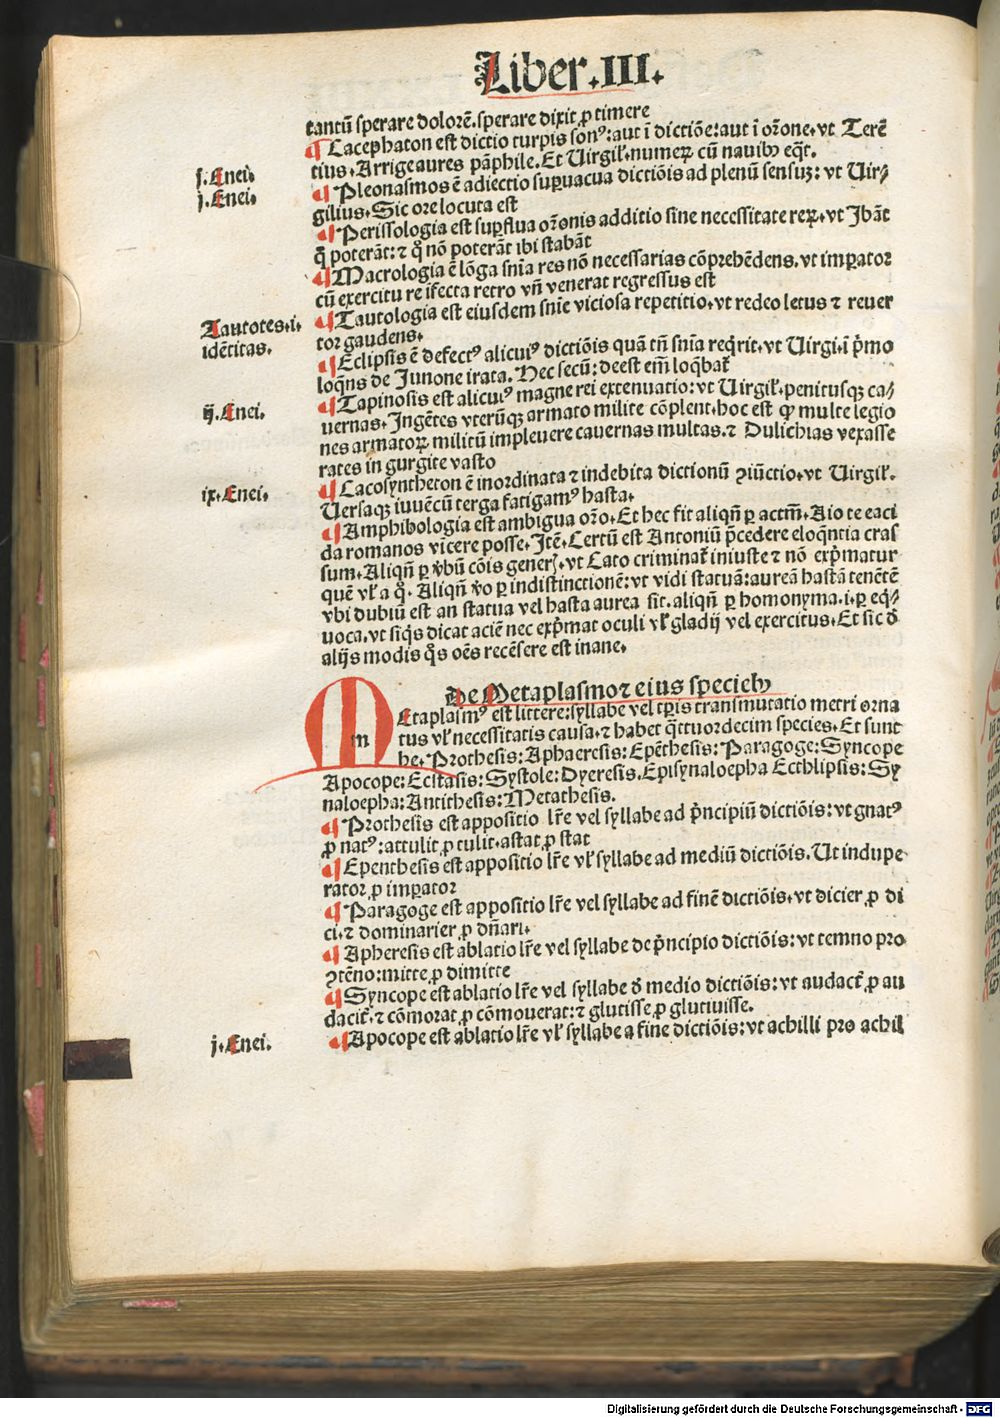 Liber.III.
tantū sperare dolorē.sperare dixit ꝓ timere
¶ Cacephaton est dictio turpis sonꝰ:aut ī dictiōe:aut ī orōne.vt Terē
tius.Arrige aures pāphile.Et Uirgil.numeꝝ cū nauibꝫ eqt.
j.Enei.
¶ Pleonasmos ē adiectio suꝑuacua dictiōis ad plenū sensuꝫ:vt Uir⸗
j.Enei.
gilius.Sic ore locuta est
¶ Perissologia est suꝑflua orōnis additio sine necessitate reꝝ.vt Jbāt
q̄ poterāt:⁊ q̄ nō poterāt ibi stabāt
¶ Macrologia ē lōga sn̄ia res nō necessarias cōprehēdens.vt imꝑator
cū exercitu re īfecta retro vn̄ venerat regressus est
Tautotes.i.
¶ Tautologia est eiusdem sn̄ie viciosa repetitio.vt redeo letus ⁊ reuer
idētitas.
tor gaudens.
¶ Eclipsis ē defectꝰ alicuiꝰ dictiōis quā tn̄ sn̄ia reqͥrit.vt Uirgi.ī pͥmo
loq̄ns de Junone irata.Hec secū:deest em̄ loq̄bat̄
¶ Tapinosis est alicuiꝰ magne rei extenuatio:vt Uirgil.penitusqꝫ ca⸗
ij.Enei.
uernas.Jngētes vterūqꝫ armato milite cōplent.hoc est ꝙ multe legio
nes armatoꝝ militū impleuere cauernas multas.⁊ Dulichias vexasse
rates in gurgite vasto
¶ Cacosyntheton ē inordinata ⁊ indebita dictionū ꝯiūctio.vt Uirgil.
ix.Enei.
Uersaqꝫ iuuēcū terga fatigamꝰ hasta.
¶ Amphibologia est ambigua orō.Et hec fit aliqn̄ ꝑ actm̄.Aio te eaci
da romanos vicere posse.Jtē.Certū est Antoniū p̄cedere eloq̄ntia cras
sum.Aliqn̄ ꝑ v̄bū cōis generꝭ.vt Cato criminat̄ iniuste ⁊ nō exp̄matur
quē vl̄ a qͦ.Aliqn̄ v̄o ꝑ indistinctionē:vt vidi statuā:aureā hastā tenētē
vbi dubiū est an statua vel hasta aurea sit.aliqn̄ ꝑ homonyma.i.ꝑ eq̄⸗
uoca.vt siqͥs dicat aciē nec exp̄mat oculi vl̄ gladij vel exercitus.Et sic d̄
alijs modis qͦs oēs recēsere est inane.
De Metaplasmo ⁊ eius speciebꝫ
Metaplasmꝰ est littere:syllabe vel tꝑis transmutatio metri orna
tus vl̄ necessitatis causa.⁊ habet qͣttuordecim species.Et sunt
he.Prothesis:Aphaeresis:Epēthesis:Paragoge:Syncope
Apocope:Ecstasis:Systole:Dyeresis.Episynaloepha Ecthlipsis:Sy
naloepha:Antithesis:Metathesis.
¶ Prothesis est appositio lr̄e vel syllabe ad pͥncipiū dictiōis:vt gnatꝰ
ꝓ natꝰ:attulit ꝓ tulit.astat ꝓ stat
¶ Epenthesis est appositio lr̄e vl̄ syllabe ad mediū dictiōis.Ut indupe
rator ꝓ imꝑator
¶ Paragoge est appositio lr̄e vel syllabe ad finē dictiōis.vt dicier ꝓ di
ci.⁊ dominarier ꝓ dn̄ari.
¶ Apheresis est ablatio lr̄e vel syllabe de pͥncipio dictiōis:vt temno pro
ꝯtēno:mitte ꝓ dimitte
¶ Syncope est ablatio lr̄e vel syllabe d̄ medio dictiōis:vt audact̄ ꝓ au
dacit̄.⁊ cōmorat ꝓ cōmouerat:⁊ glutisse ꝓ glutiuisse.
j.Enei.
¶ Apocope est ablatio lr̄e vl̄ syllabe a fine dictiōis:vt achilli pro achil
Digitalisierung gefördert durch die Deutsche Forschungsgemeinschaft - DFG